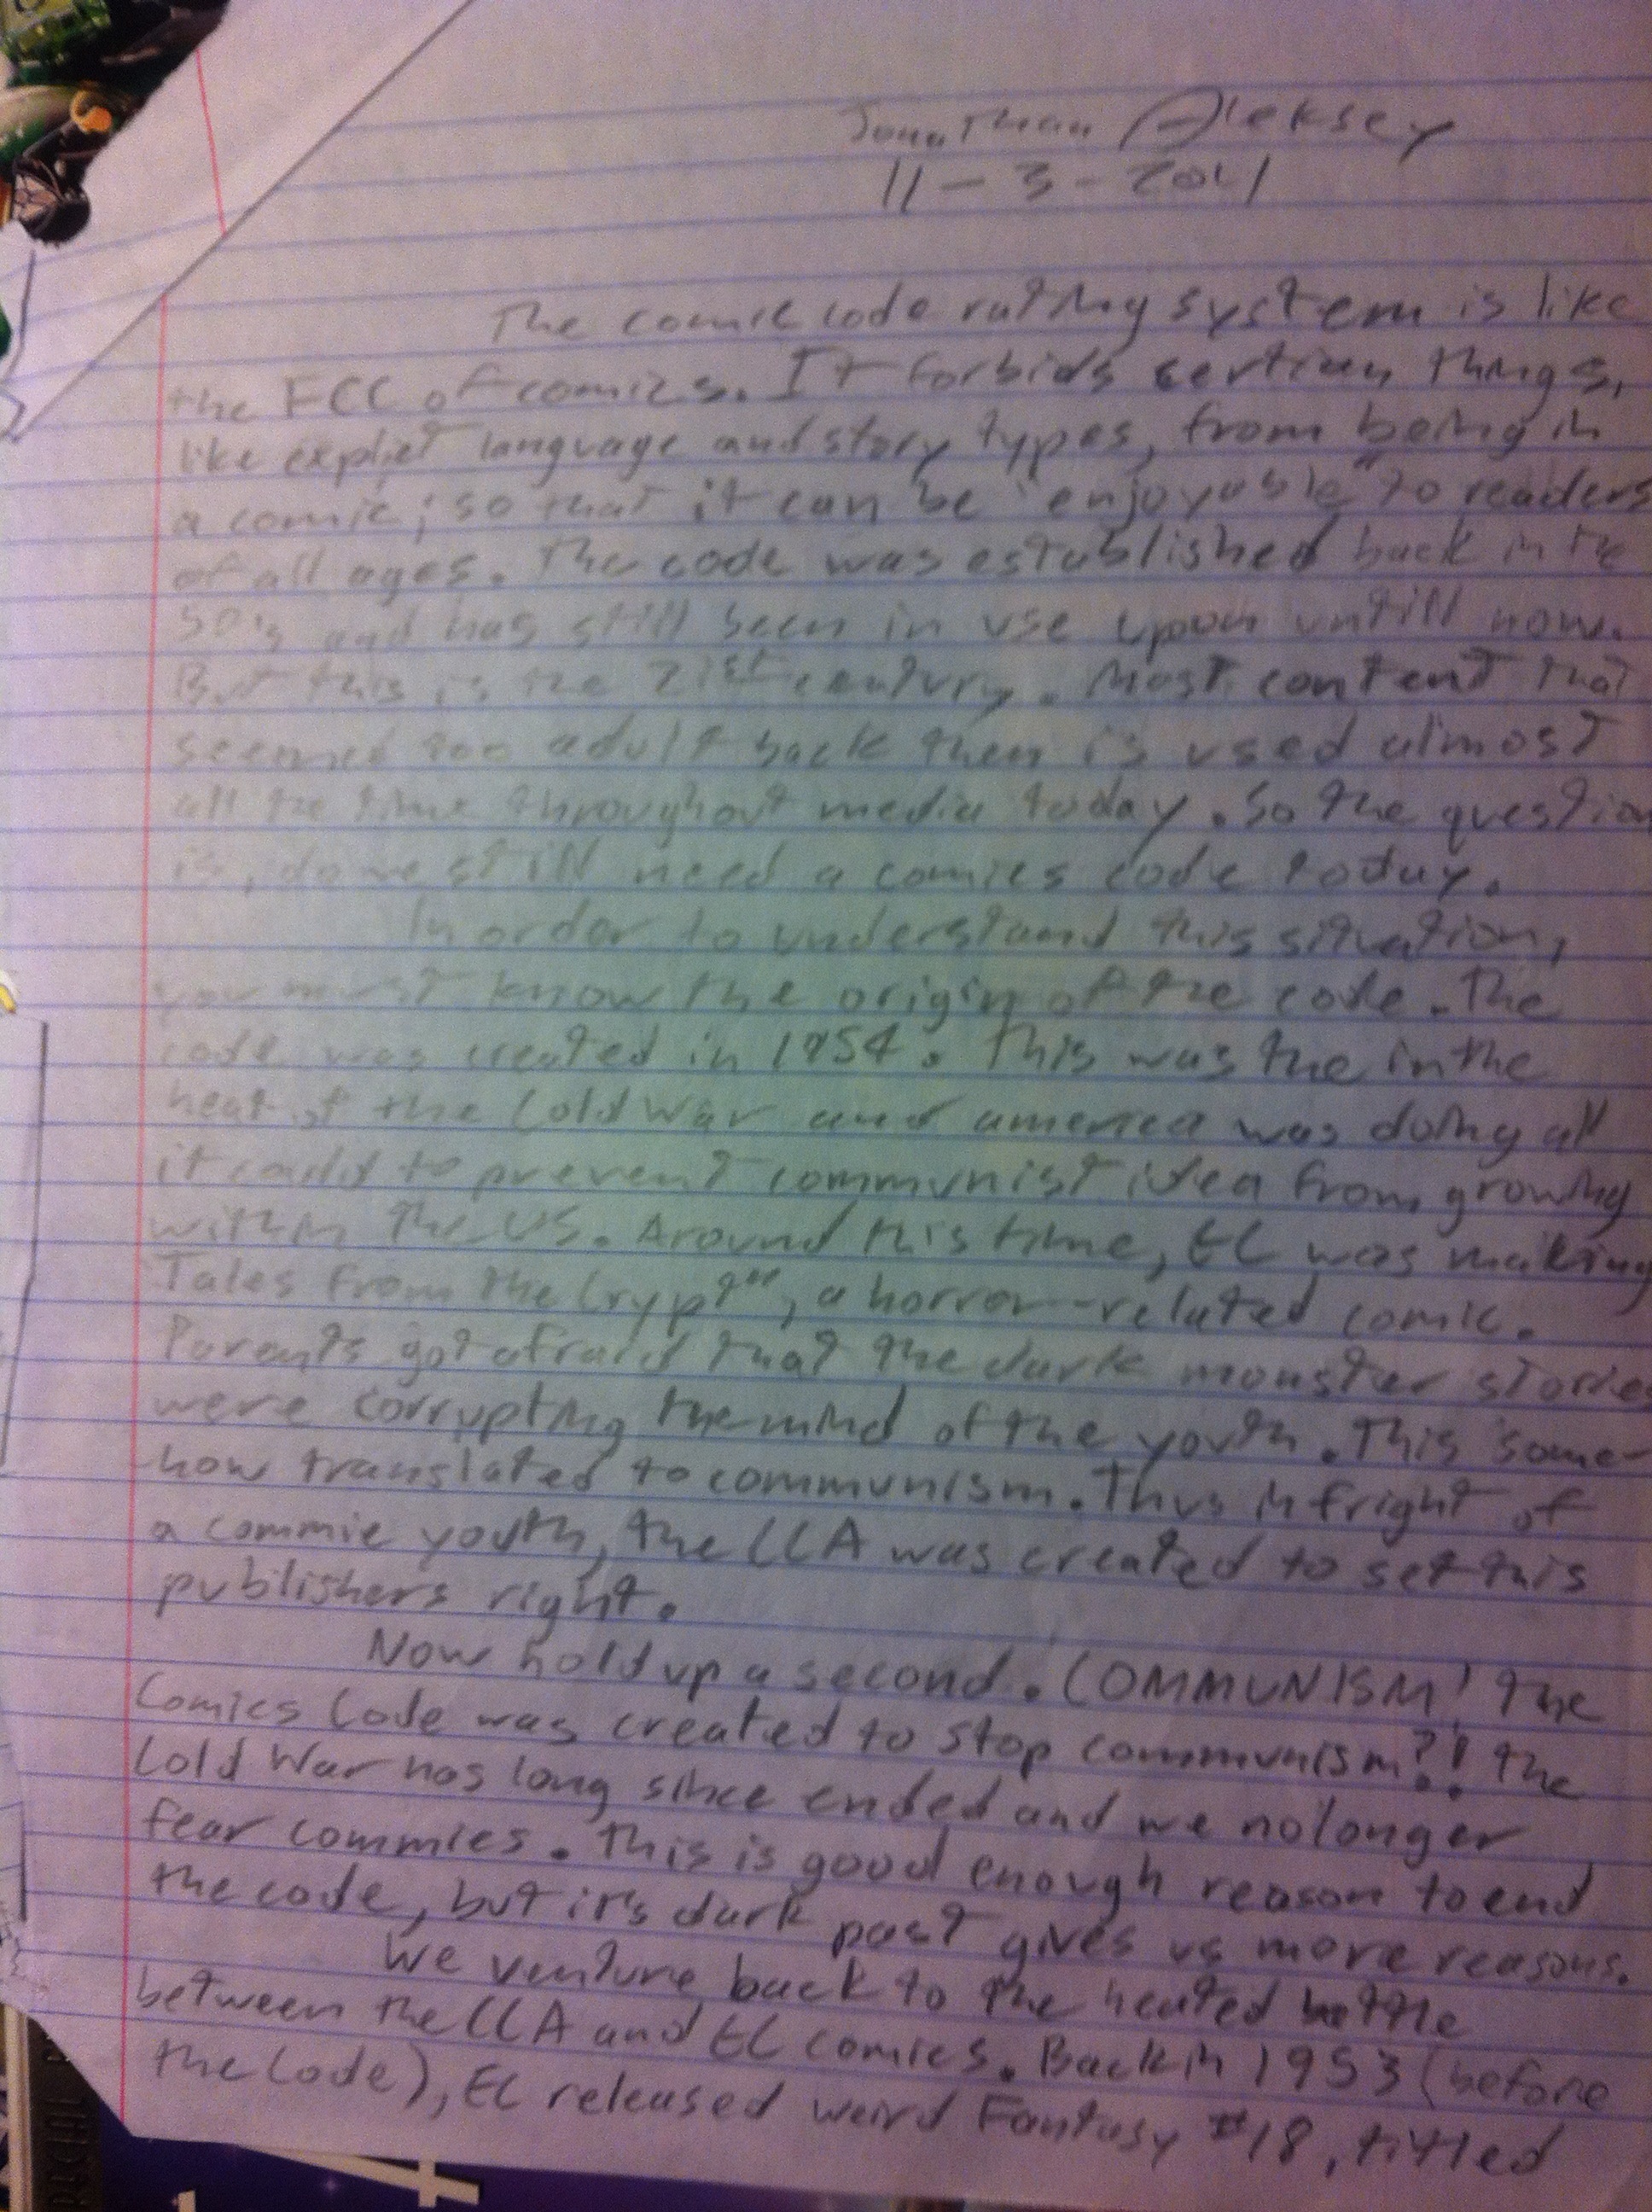 Jonathan Aleksey
11-3-2011
The comic code rating system is like
the FCC of comics. It forbids sertian things,
like explict language and story types, from being in
a comic; so that it can be "enjoyable" to readers
of all ages. The code was established back in the
50's and has still been in use upon untill now.
But this is the 21st century. Most content that
seemed too adult back then is used almost
all the time throughout media today. So the question
is, do we still need a comics code today.
In order to understand this situation,
you must know the origin of the code. The
code was created in 1954. This was the in the
heat of the Cold War and america was doing all
it could to prevent communist idea from growing
within the US. Around this time, EC was making
Tales from the Crypt", a horror-related comic.
Parents got afraid that the dark monster stories
were corrupting the mind of the youth. This some-
how translated to communism. Thus in fright of
a commie youth, the CCA was created to set this
publishers right.
Now hold up a second. COMMUNISM! The
Comics Code was created to stop communism?! The
Cold War has long since ended and we no longer
fear commies. This is good enough reason to end
the code, but it's dark past gives us more reasons.
We venture back to the heated battle
between the CCA and EC comics. Back in 1953 (before
the Code), EC released weird Fantasy #18, titled